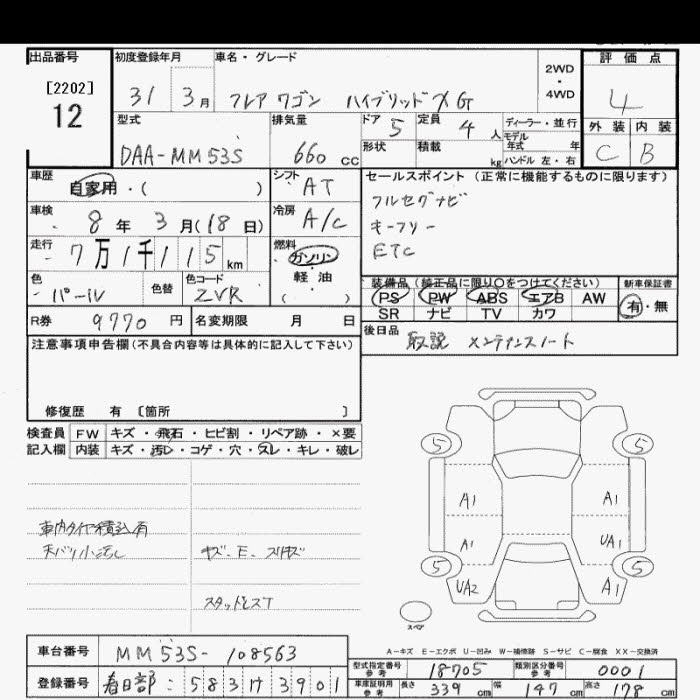 出品番号
[2202]
12
初度登録年月
31 3月
車名・グレード
フレアワゴン ハイブリッドXG
2WD
・
4WD
評価点
4
外装 内装
C B
型式
DAA-MM53S
排気量
660 cc
ドア 5
定員 4 人
形状
積載 kg
ディーラー・並行
モデル年式 年
ハンドル 左・右
車歴
自家用・( )
シフト
AT
セールスポイント(正常に機能するものに限ります)
フルセグナビ
キーフリー
ETC
車検
8年 3月(18日)
冷房
A/C
走行
7万1千115km
燃料
ガソリン
・
軽油
( )
色
パール
色替
色コード
ZVR
装備品(純正品に限り○をつけてください)
PS PW ABS エアB AW
SR ナビ TV カワ
新車保証書
有・無
R券 9770円
名変期限 月 日
後日品
取説 メンテナンスノート
注意事項申告欄(不具合内容等は具体的に記入して下さい)
修復歴 有 〔箇所 〕
検査員記入欄
FW キズ・飛石・ヒビ割・リペア跡・×要
内装 キズ・汚レ・コゲ・穴・スレ・キレ・破レ
車内タイヤ積込有
天バリ小汚し
キズ、E、スリキズ
スタッドレスT
5 5
A1 A1
A1 UA1
5 5
UA2 A1
スペア
A-キズ E-エクボ U-凹み W-補修跡 S-サビ C-腐食 XX-交換済
車台番号
MM53S-108563
登録番号
春日部:583け3901
型式指定番号
参考
18705
類別区分番号
参考
0001
車庫証明用
参考
長さ 339cm
幅 147cm
高さ 178cm